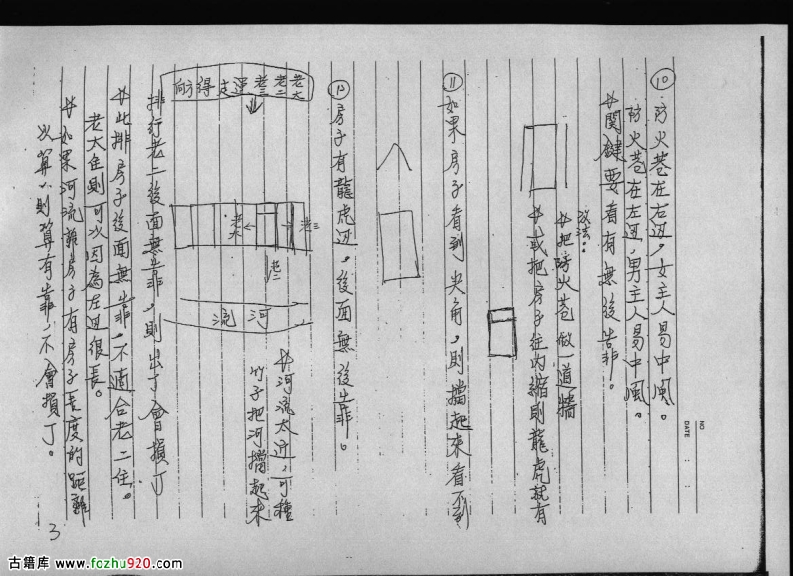 ⑩ 防火巷在右边，女主人易中風。
防火巷在左边，男主人易中風。
*関鍵要看有無後靠。
改法：
*把防火巷做一道牆
*或把房子往内縮則龍虎就有
⑪ 如果房子看到尖角，則擋起來看不到
⑫ 房子有龍虎边，後面無後靠。
老大
老二
老三
運
走
得
方
向
老大
老二
老三
河流
*河流太近，可種
竹子把河擋起來
排行老二後面無靠，則出丁會損丁
*此排房子後面無靠，不適合老二住。
老大住則可以因為左边很長。
*如果河流離房子有房子長度的距離
以算，則算有靠，不會損丁。
3
NO
DATE : :
古籍库 www.fozhu920.com